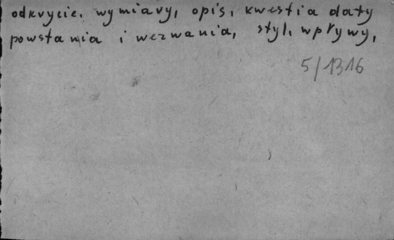 odkrycie. wymiary, opis, kwestia daty
powstania i wezwania, styl, wpływy,
5/1316